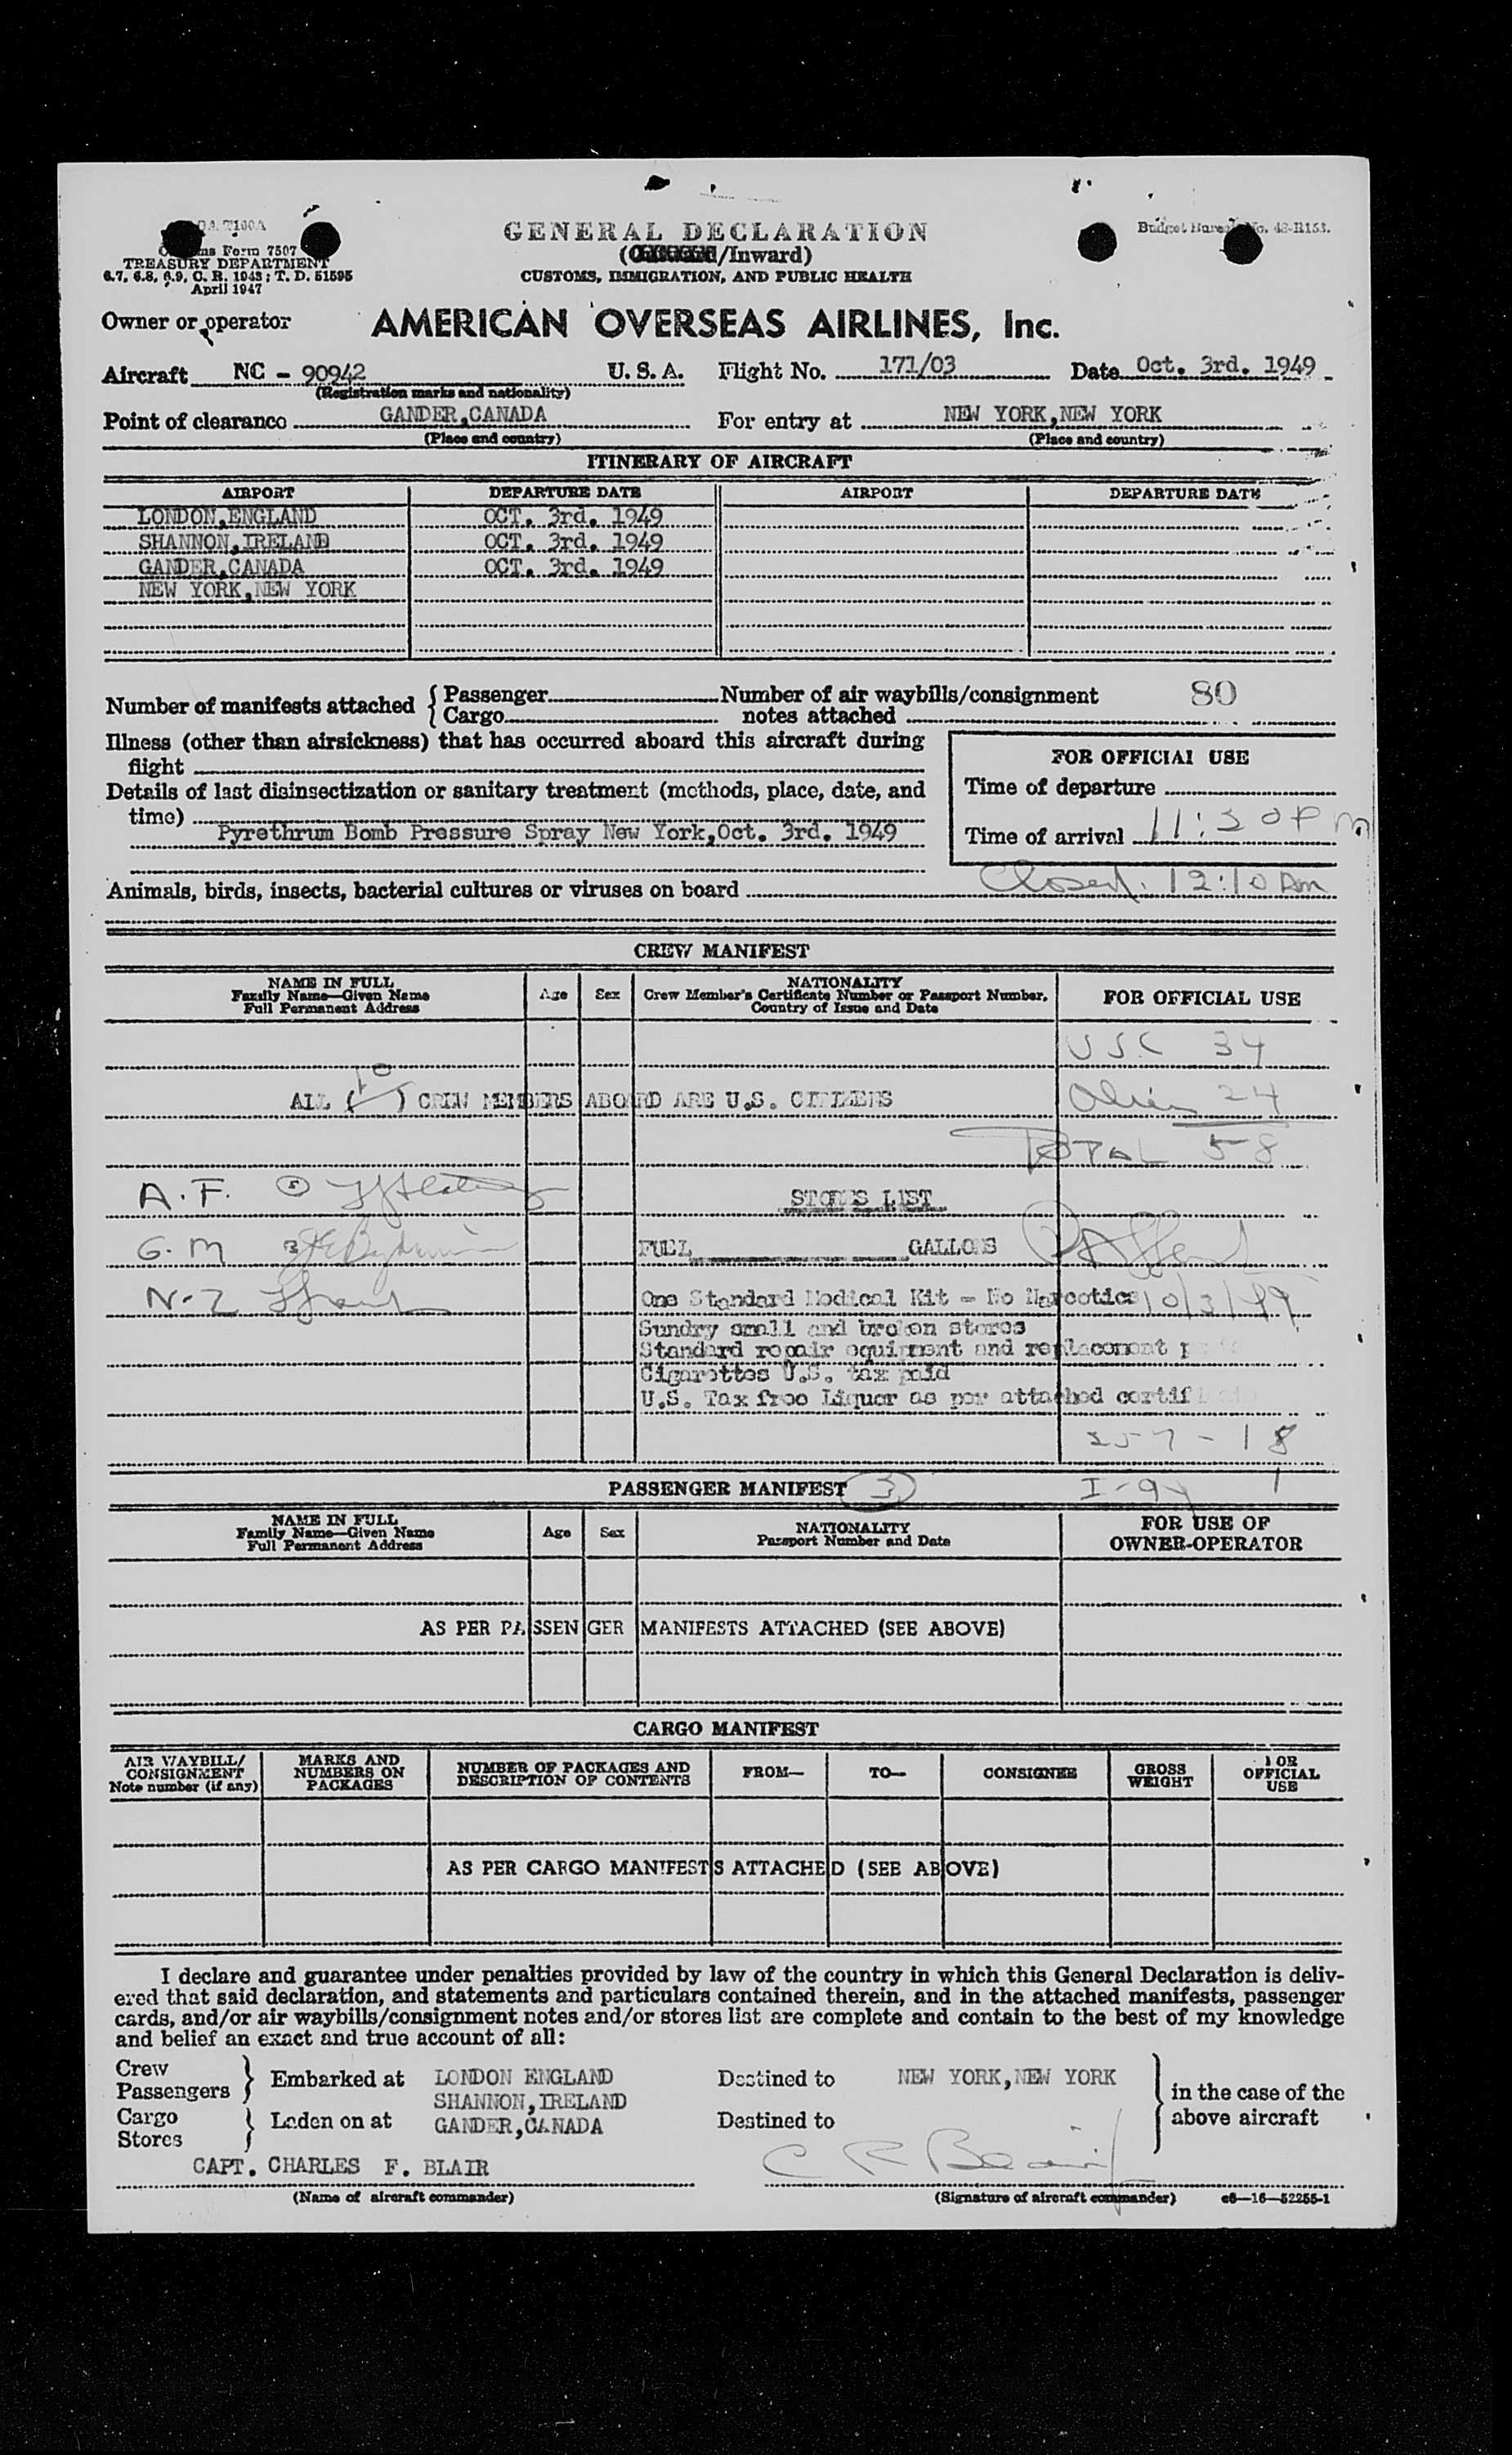 GENERAL DECLARATION
Form 7507
TREASURY DEPARTMENT
6.7, 6.8, 6.9, C. R. 1943; T. D. 51595
April 1947
/Inward)
CUSTOMS, IMMIGRATION, AND PUBLIC HEALTH
No. 48-R153.
Owner or operator AMERICAN OVERSEAS AIRLINES, Inc.
Aircraft NC - 90942 U. S. A. Flight No. 171/03 Date Oct. 3rd. 1949
(Registration marks and nationality)
Point of clearance GANDER,CANADA For entry at NEW YORK,NEW YORK
(Place and country) (Place and country)
ITINERARY OF AIRCRAFT
AIRPORT DEPARTURE DATE AIRPORT DEPARTURE DATE
LONDON,ENGLAND OCT. 3rd. 1949
SHANNON,IRELAND OCT. 3rd. 1949
GANDER,CANADA OCT. 3rd. 1949
NEW YORK,NEW YORK
Number of manifests attached { Passenger Number of air waybills/consignment 80
Cargo notes attached
Illness (other than airsickness) that has occurred aboard this aircraft during
flight
Details of last disinsectization or sanitary treatment (methods, place, date, and
time)
Pyrethrum Bomb Pressure Spray New York,Oct. 3rd. 1949
FOR OFFICIAL USE
Time of departure
Time of arrival 11:30 PM
Animals, birds, insects, bacterial cultures or viruses on board Closed. 12:10 am
CREW MANIFEST
NAME IN FULL
Family Name—Given Name
Full Permanent Address
Age Sex
NATIONALITY
Crew Member's Certificate Number or Passport Number,
Country of Issue and Date
FOR OFFICIAL USE
USC 34
ALL (10) CREW MEMBERS ABOARD ARE U.S. CITIZENS Alien 24
TOTAL 58
A.F.
STORES LIST
G.M
FUEL GALLONS
N-Z
One Standard Medical Kit - No Narcotics 10/3/49
Sundry small and broken stores
Standard repair equipment and replacement
Cigarettes U.S. tax paid
U.S. Tax free Liquor as per attached
257 - 18
PASSENGER MANIFEST 3 I-94 1
NAME IN FULL
Family Name—Given Name
Full Permanent Address
Age Sex
NATIONALITY
Passport Number and Date
FOR USE OF
OWNER-OPERATOR
AS PER PASSENGER MANIFESTS ATTACHED (SEE ABOVE)
CARGO MANIFEST
AIR WAYBILL/
CONSIGNMENT
Note number (if any)
MARKS AND
NUMBERS ON
PACKAGES
NUMBER OF PACKAGES AND
DESCRIPTION OF CONTENTS
FROM— TO— CONSIGNEE
GROSS
WEIGHT
FOR
OFFICIAL
USE
AS PER CARGO MANIFESTS ATTACHED (SEE ABOVE)
I declare and guarantee under penalties provided by law of the country in which this General Declaration is deliv-
ered that said declaration, and statements and particulars contained therein, and in the attached manifests, passenger
cards, and/or air waybills/consignment notes and/or stores list are complete and contain to the best of my knowledge
and belief an exact and true account of all:
Crew
Passengers } Embarked at LONDON ENGLAND Destined to NEW YORK,NEW YORK } in the case of the
SHANNON,IRELAND
Cargo
Stores } Laden on at GANDER,CANADA Destined to above aircraft
CAPT. CHARLES F. BLAIR C F Blair
(Name of aircraft commander) (Signature of aircraft commander) c6—16—52255-1